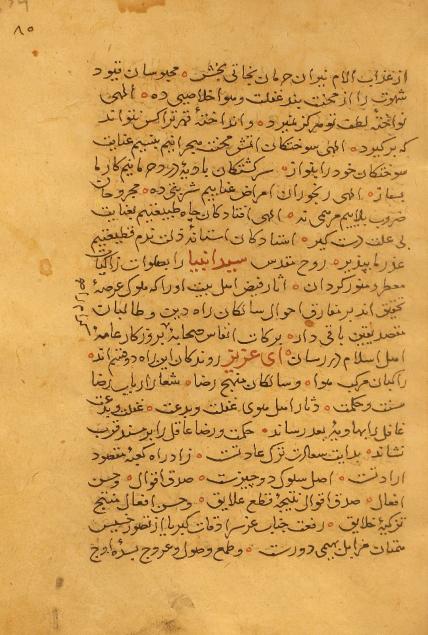 ۸۵
از عذاب الام نیران حرمان نجاتی بخش محبوسان قیود
شهوت را از محنت بند غفلت و هوا خلاصی ده الهی
نواخته لطف تو هرگز نمیرد و انداخته قهر ترا کس نتواند
که برگیرد الهی سوختکان آتش محنت هجرانیم بنسیم عنایت
سوختکان خود را بنواز سرکشتکان بادیهٔ درد حرمانیم کار ما
بساز الهی رنجوران امراض عنائیم شربتی ده مجروحان
ضروب بلائیم مرهمی نه الهی افتادکان چاه طبیعتیم بعنایت
بی علت دست کیر استادکان آستانه ندمیم
عذر ما بپذیر روح مقدس سید انبیا را بصلوات زاکیات
معطر و منور کردان آثار فیض اهل بیت او را که ملوک عرصهٔ
تحقیق اند بر مفارق احوال سالکان راه دین و طالبان
یقین باقی دار برکات انفاس صحابه بروزکار عامهٔ
اهل اسلام در رسان ای عزیز روندکان این راه دو قسم اند
راکبان مرکب هوا و سالکان منهج رضا شعار ارباب رضا
سنت و حکمت دثار اهل هوی غفلت و بدعت غفلت و بدعت
غافل را بهاویهٔ بعد رساند حکمت و رضا عاقل را بر مسند قرب
نشاند بدایت سعادت ترک عادت زاد راه کعبهٔ مقصود
ارادت اصل سلوک دو چیزست صدق اقوال و حسن
افعال صدق اقوال نتیجهٔ قطع علایق و حسن افعال منتج
تزکیهٔ خلایق رفعت جناب عز سرادقات کبریا از تصور خسیس
همتان مزابل بهیمی دورست و طمع وصول و عروج بذروهٔ اوج